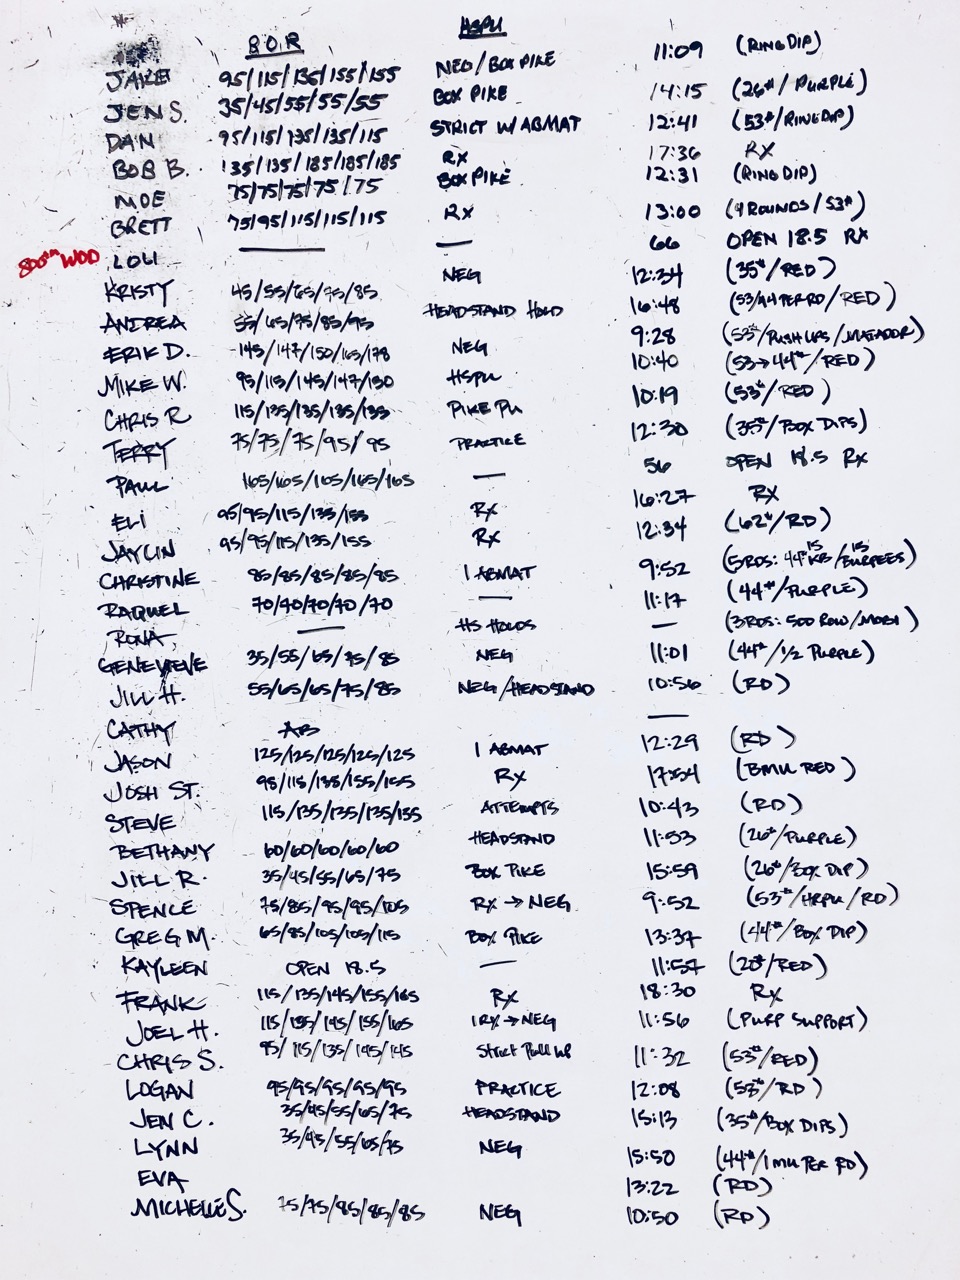 B.O.R HSPU
JAKE 95/115/135/155/155 NEG/BOX PIKE 11:09 (RING DIP)
JEN S. 35/45/55/55/55 BOX PIKE 14:15 (26#/PURPLE)
DAN 95/115/135/135/115 STRICT W/ABMAT 12:41 (53#/RING DIP)
BOB B. 135/135/185/185/185 RX 17:36 RX
MOE 75/75/75/75/75 BOX PIKE 12:31 (RING DIP)
BRETT 75/95/115/115/115 RX 13:00 (9 ROUNDS/53#)
800th WOD LOLI — — 66 OPEN 18.5 RX
KRISTY 45/55/65/75/85 NEG 12:34 (35#/RED)
ANDREA 55/65/75/85/95 HEADSTAND HOLD 16:48 (53/44 PER RD/RED)
ERIK D. 145/147/150/165/178 NEG 9:28 (53#/PUSH UPS/MATADOR)
MIKE W. 95/115/145/147/130 HSPU 10:40 (53→44#/RED)
CHRIS R 115/135/135/135/135 PIKE PU 10:19 (53#/RED)
TERRY 75/75/75/95/95 PRACTICE 12:30 (35#/BOX DIPS)
PAUL 165/165/165/165/165 — 56 OPEN 18.5 RX
ELI 95/95/115/135/155 RX 16:27 RX
JAYLIN 95/95/115/135/155 RX 12:34 (62#/RD)
CHRISTINE 85/85/85/85/85 1 ABMAT 9:52 (5RDS: 44# 15 KB/15 BURPEES)
RAQUEL 70/70/70/70/70 — 11:17 (44#/PURPLE)
RONA — HS HOLDS — (3RDS: 500 ROW/MOBI)
GENEVIEVE 35/55/65/75/85 NEG 11:01 (44#/1/2 PURPLE)
JILL H. 55/65/65/75/85 NEG/HEADSTAND 10:56 (RD)
CATHY AB —
JASON 125/125/125/125/125 1 ABMAT 12:29 (RD)
JOSH ST. 95/115/135/155/155 RX 17:54 (BMU RED)
STEVE 115/135/135/135/135 ATTEMPTS 10:43 (RD)
BETHANY 60/60/60/60/60 HEADSTAND 11:53 (26#/PURPLE)
JILL R. 35/45/55/65/75 BOX PIKE 15:59 (26#/BOX DIP)
SPENCE 75/85/95/95/105 RX→NEG 9:52 (53#/HRPU/RD)
GREG M. 65/85/105/105/115 BOX PIKE 13:37 (44#/BOX DIP)
KAYLEEN OPEN 18.5 — 11:57 (20#/RED)
FRANK 115/135/145/155/165 RX 18:30 RX
JOEL H. 115/135/145/155/165 1RX→NEG 11:56 (PURP SUPPORT)
CHRIS S. 95/115/135/145/145 STRICT PULL UP 11:32 (53#/RED)
LOGAN 95/95/95/95/95 PRACTICE 12:08 (53#/RD)
JEN C. 35/45/55/65/75 HEADSTAND 15:13 (35#/BOX DIPS)
LYNN 35/45/55/65/75 NEG 15:50 (44#/1MU PER RD)
EVA 13:22 (RD)
MICHELLE S. 75/75/85/85/85 NEG 10:50 (RD)